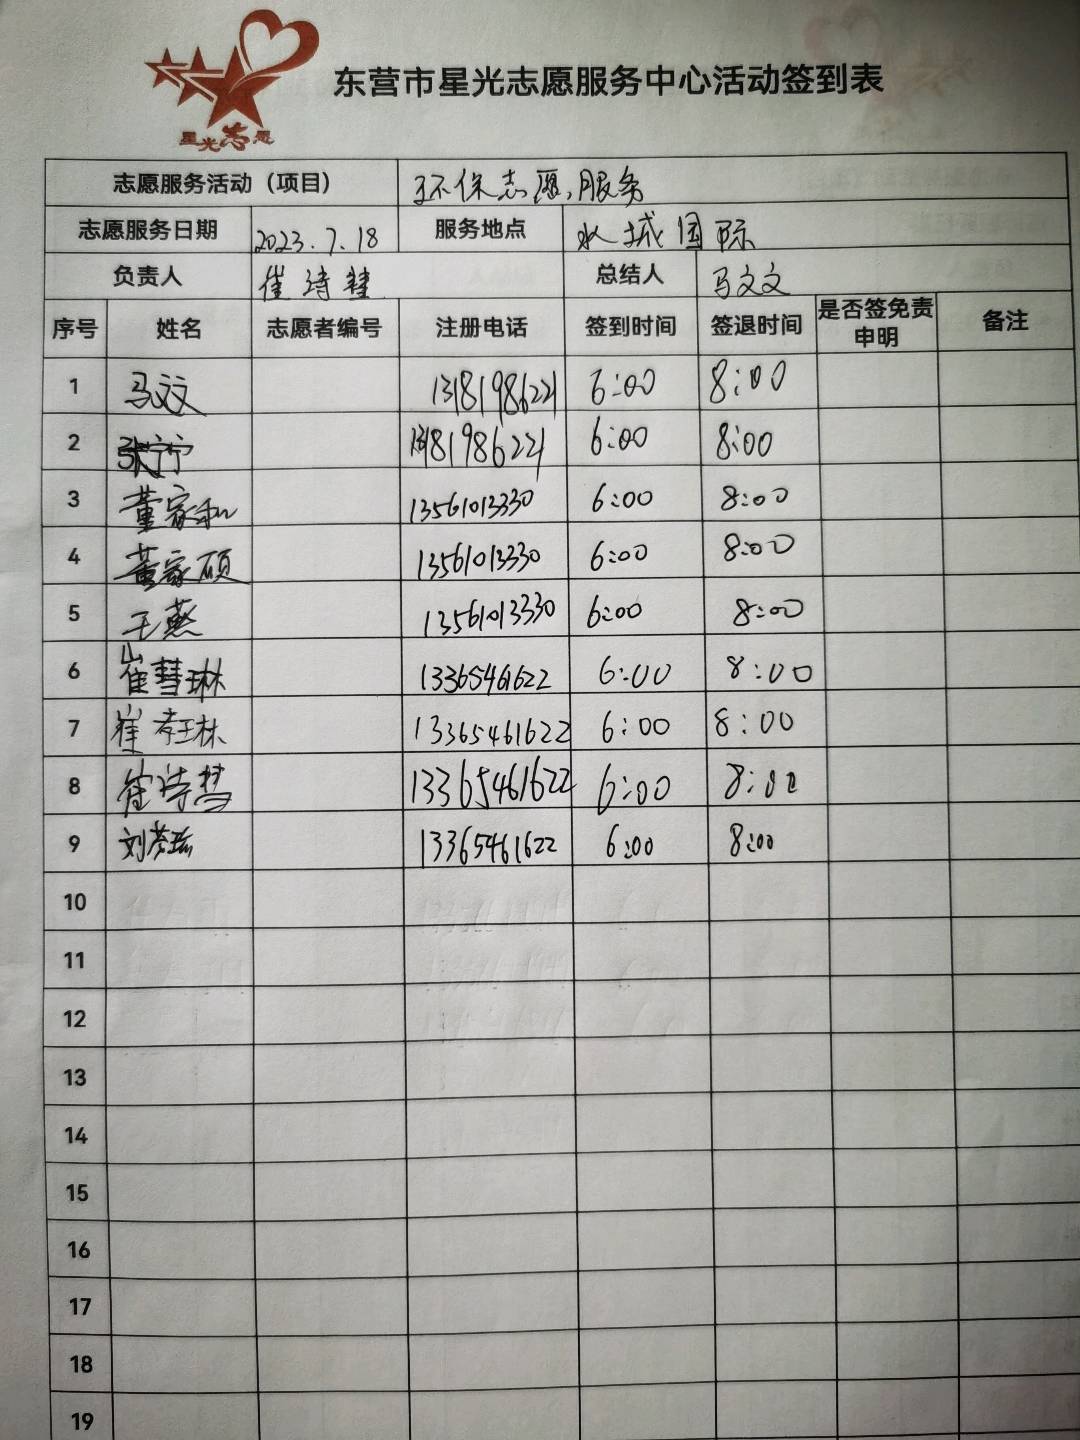 星光志愿
东营市星光志愿服务中心活动签到表
志愿服务活动（项目） 环保志愿服务
志愿服务日期 2023.7.18 服务地点 水城国际
负责人 崔诗 总结人 马文文
序号 姓名 志愿者编号 注册电话 签到时间 签退时间 是否签免责申明 备注
1 马文文 13181986221 6:00 8:00
2 张宁宁 13181986221 6:00 8:00
3 董家和 13561013330 6:00 8:00
4 董家硕 13561013330 6:00 8:00
5 王燕 13561013330 6:00 8:00
6 崔彗琳 13365461622 6:00 8:00
7 崔孝林 13365461622 6:00 8:00
8 崔诗 13365461622 6:00 8:00
9 刘 13365461622 6:00 8:00
10
11
12
13
14
15
16
17
18
19